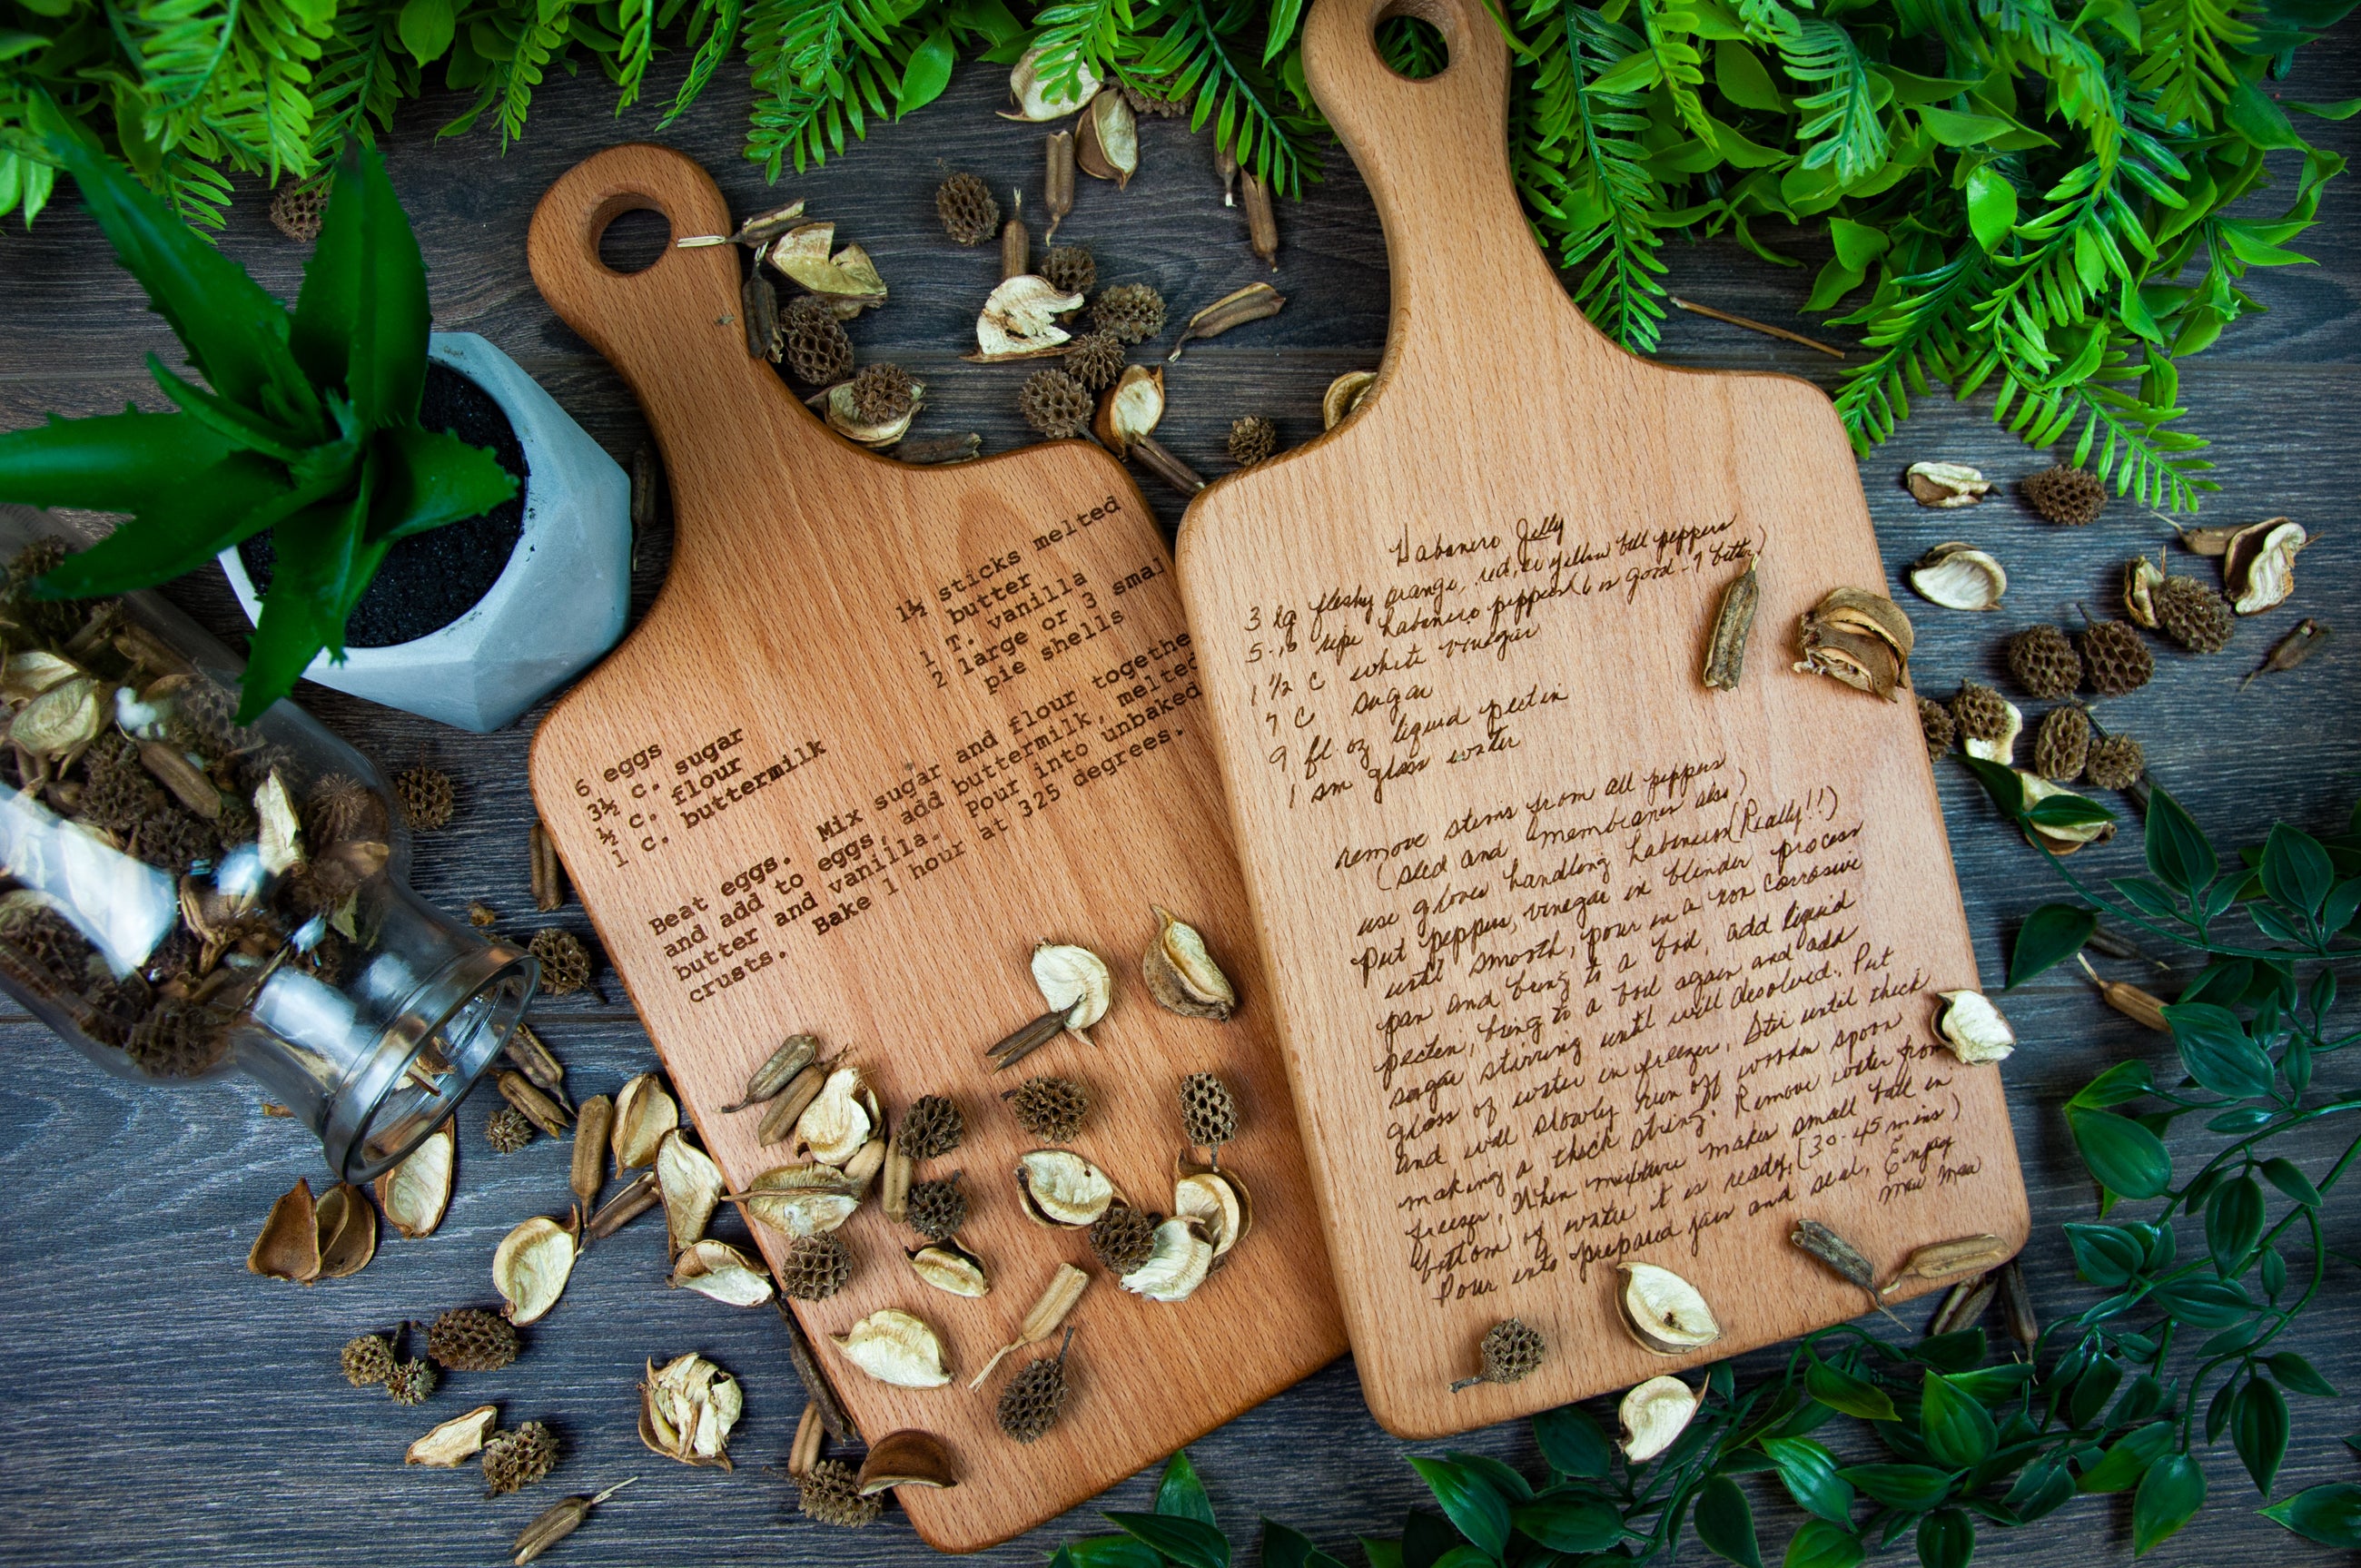 1½ sticks melted
butter
1 T. vanilla
2 large or 3 smal
pie shells
6 eggs
3½ c. sugar
½ c. flour
1 c. buttermilk
Beat eggs. Mix sugar and flour togethe
and add to eggs, add buttermilk, melted
butter and vanilla. Pour into unbaked
crusts. Bake 1 hour at 325 degrees.
Habanero Jelly
3 lg fleshy orange, red, or yellow bell peppers
5-10 ripe habanero peppers (6 is good - 7 better)
1 1/2 C white vinegar
7 C sugar
9 fl oz liquid pectin
1 sm glass water
remove stems from all peppers
(seed and membranes also)
use gloves handling habaneros (Really!!)
Put peppers, vinegar in blender process
until smooth, pour in a non corrosive
pan and bring to a boil, add liquid
pectin, bring to a boil again and add
sugar stirring until well desolved. Put
glass of water in freezer. Stir until thick
and will slowly run off wooden spoon
making a thick string. Remove water from
freezer, When mixture makes small ball in
bottom of water it is ready, (30-45 mins)
Pour into prepared jars and seal, Enjoy
Maw Maw